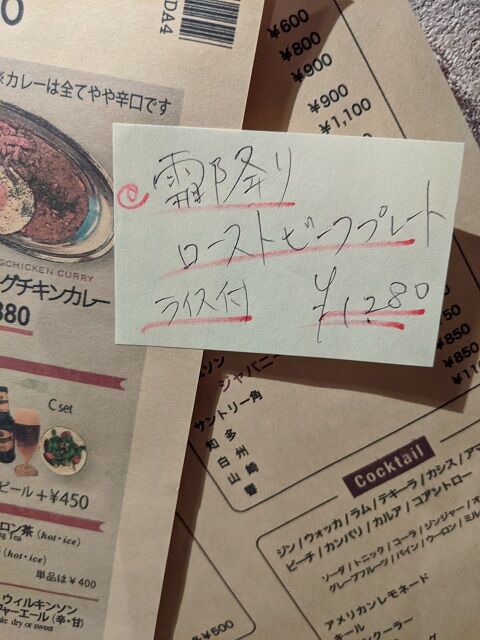 DA4
※カレーは全てやや辛口です
CHICKEN CURRY
グチキンカレー
880
C set
ビール +¥450
ロン茶 (hot・ice)
(hot・ice)
単品は¥400
ウィルキンソン
ジャーエール (辛・甘)
dry or sweet
¥600
¥800
¥900
¥900
¥1,100
霜降り
ローストビーフプレート
ライス付 ¥1,280
¥850
¥850
ジャパニー
サントリー角
知多
白州
山崎
響
Cocktail
ジン / ウォッカ / ラム / テキーラ / カシス / アマ
ピーチ / カンパリ / カルア / コアントロー
ソーダ / トニック / コーラ / ジンジャー / オ
グレープフルーツ / パイン / ウーロン / ミル
アメリカンレモネード
キール
クーラー
¥500